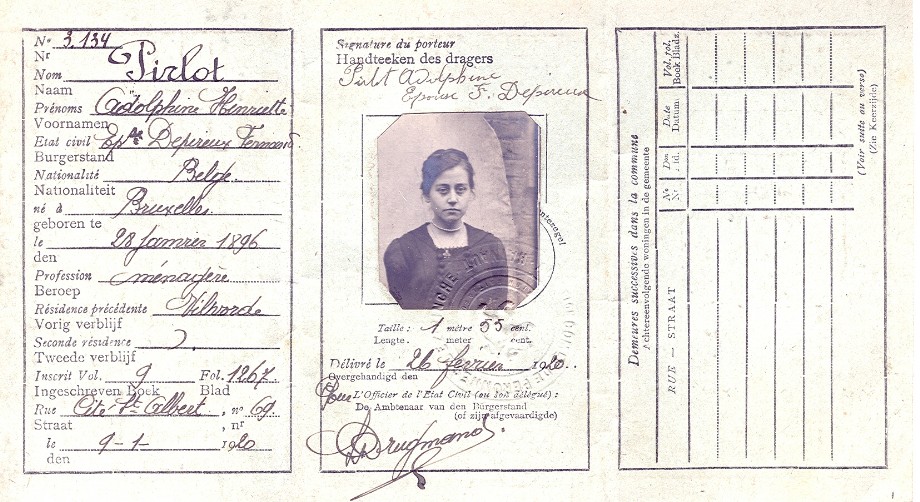 N° 3.134
Nr
Nom Pirlot
Naam
Prénoms Adolphine Henriette
Voornamen
Etat civil Epse Depireux Fernand
Burgerstand
Nationalité Belge
Nationaliteit
né à Bruxelles
geboren te
le 28 janvier 1896
den
Profession ménagère
Beroep
Résidence précédente Vilvorde
Vorig verblijf
Seconde résidence
Tweede verblijf
Inscrit Vol. 9 Fol. 1267
Ingeschreven Boek Blad
Rue Cité St Albert, n° 69
Straat , nr
le 9-1- 1920
den
Signature du porteur
Handteeken des dragers
Pirlot Adolphine
Epouse F. Depireux
Taille: 1 mètre 55 cent.
Lengte. meter cent.
Délivré le 26 février 1920.
Overgehandigd den
Pour L'Officier de l'Etat Civil (ou son délégué):
De Ambtenaar van den Burgerstand
(of zijn afgevaardigde)
Demeures successives dans la commune
Achtereenvolgende woningen in de gemeente
RUE — STRAAT
N°
Nr
Don
id.
Date
Datum.
Vol. fol.
Boek Bladz.
(Voir suite au verso)
(Zie Keerzijde)